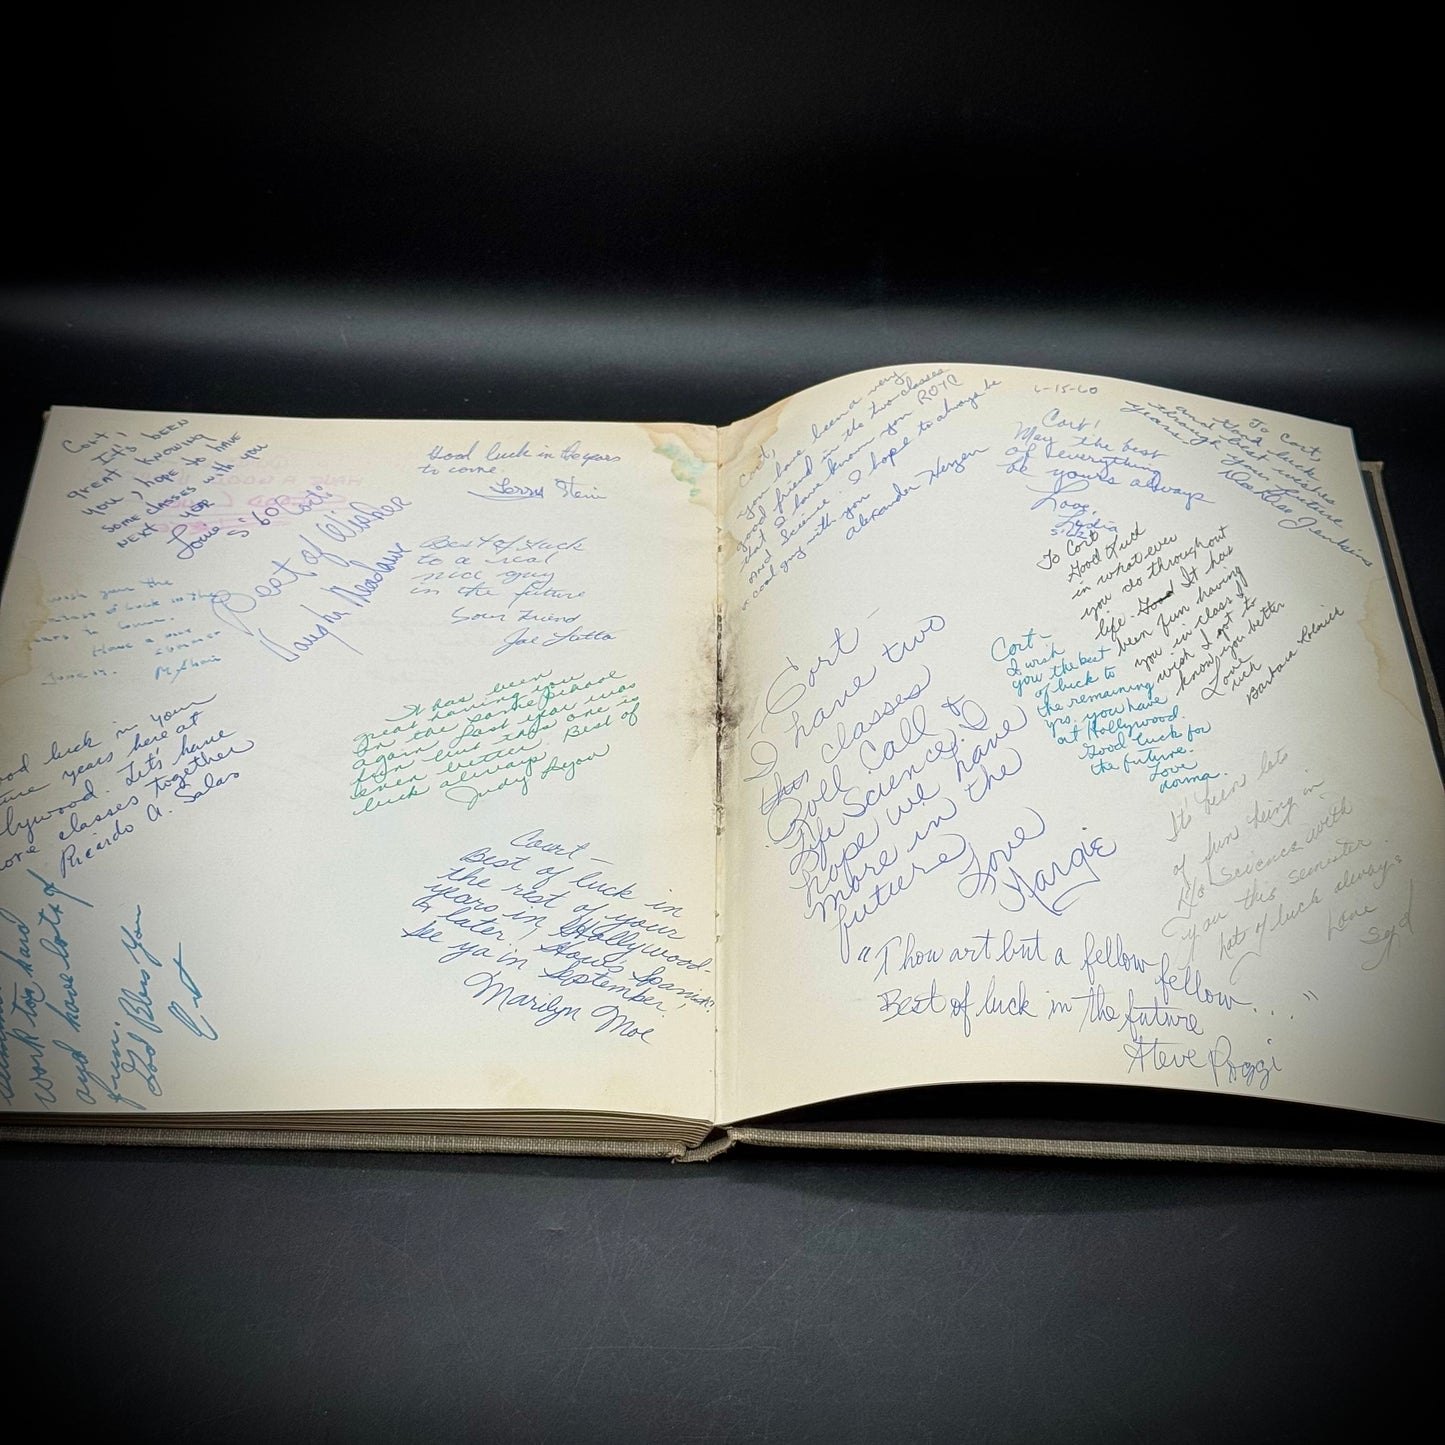 Cort,
It's been
great knowing
you, hope to have
some classes with you
next year
Love
S'60
Good luck in the years
to come.
Best of Wishes
Best of Luck
to a real
nice guy
in the future
Your Friend
Joe
wish you the
best of luck in the
years to come.
Have a nice
summer
June
good luck in your
future years here at
Hollywood. Let's have
more classes together
Ricardo A. Salas
It has been
great having you
in the same school
again last year was
fun but this one is
even better. Best of
luck always
Judy
work too hard
and have lots of
fun.
God Bless You
Court—
Best of luck in
the rest of your
years in Hollywood—
& later. How's Spanish?
See ya in September.
Marilyn Moe
Cort,
you have been a very
good friend in the two classes
that I have known you ROTC
and Science. I hope to always be
a cool guy with you
Alexander Herzen
6-15-60
Cort!
May the best
of everything
be yours always
Love,
Lydia
S'62
To Cort,
Good luck
and best wishes
through your future
years.
Jenkins
To Cort
Good luck
in what ever
you do throughout
life. It has
been fun having
you in class &
wish I got to
know you better
Love
Barbara
Cort—
I wish
you the best
of luck to
the remaining
yrs. you have
at Hollywood.
Good luck for
the future.
Love
Norma.
Cort—
I have two
classes
Roll Call &
Life Science. I
hope we have
more in the
future
Love
Margie
It's been lots
of fun being in
Science with
you this semester.
lots of luck always
Love
Syd
"Thou art but a fellow,
fellow...."
Best of luck in the future
Steve Poggi